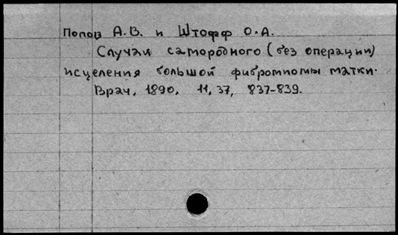 Попов А.В. и Штофф О.А.
Случаи самородного (без операции)
исцеления большой фибромиомы матки.
Врач, 1890, 11, 37, 837-839.